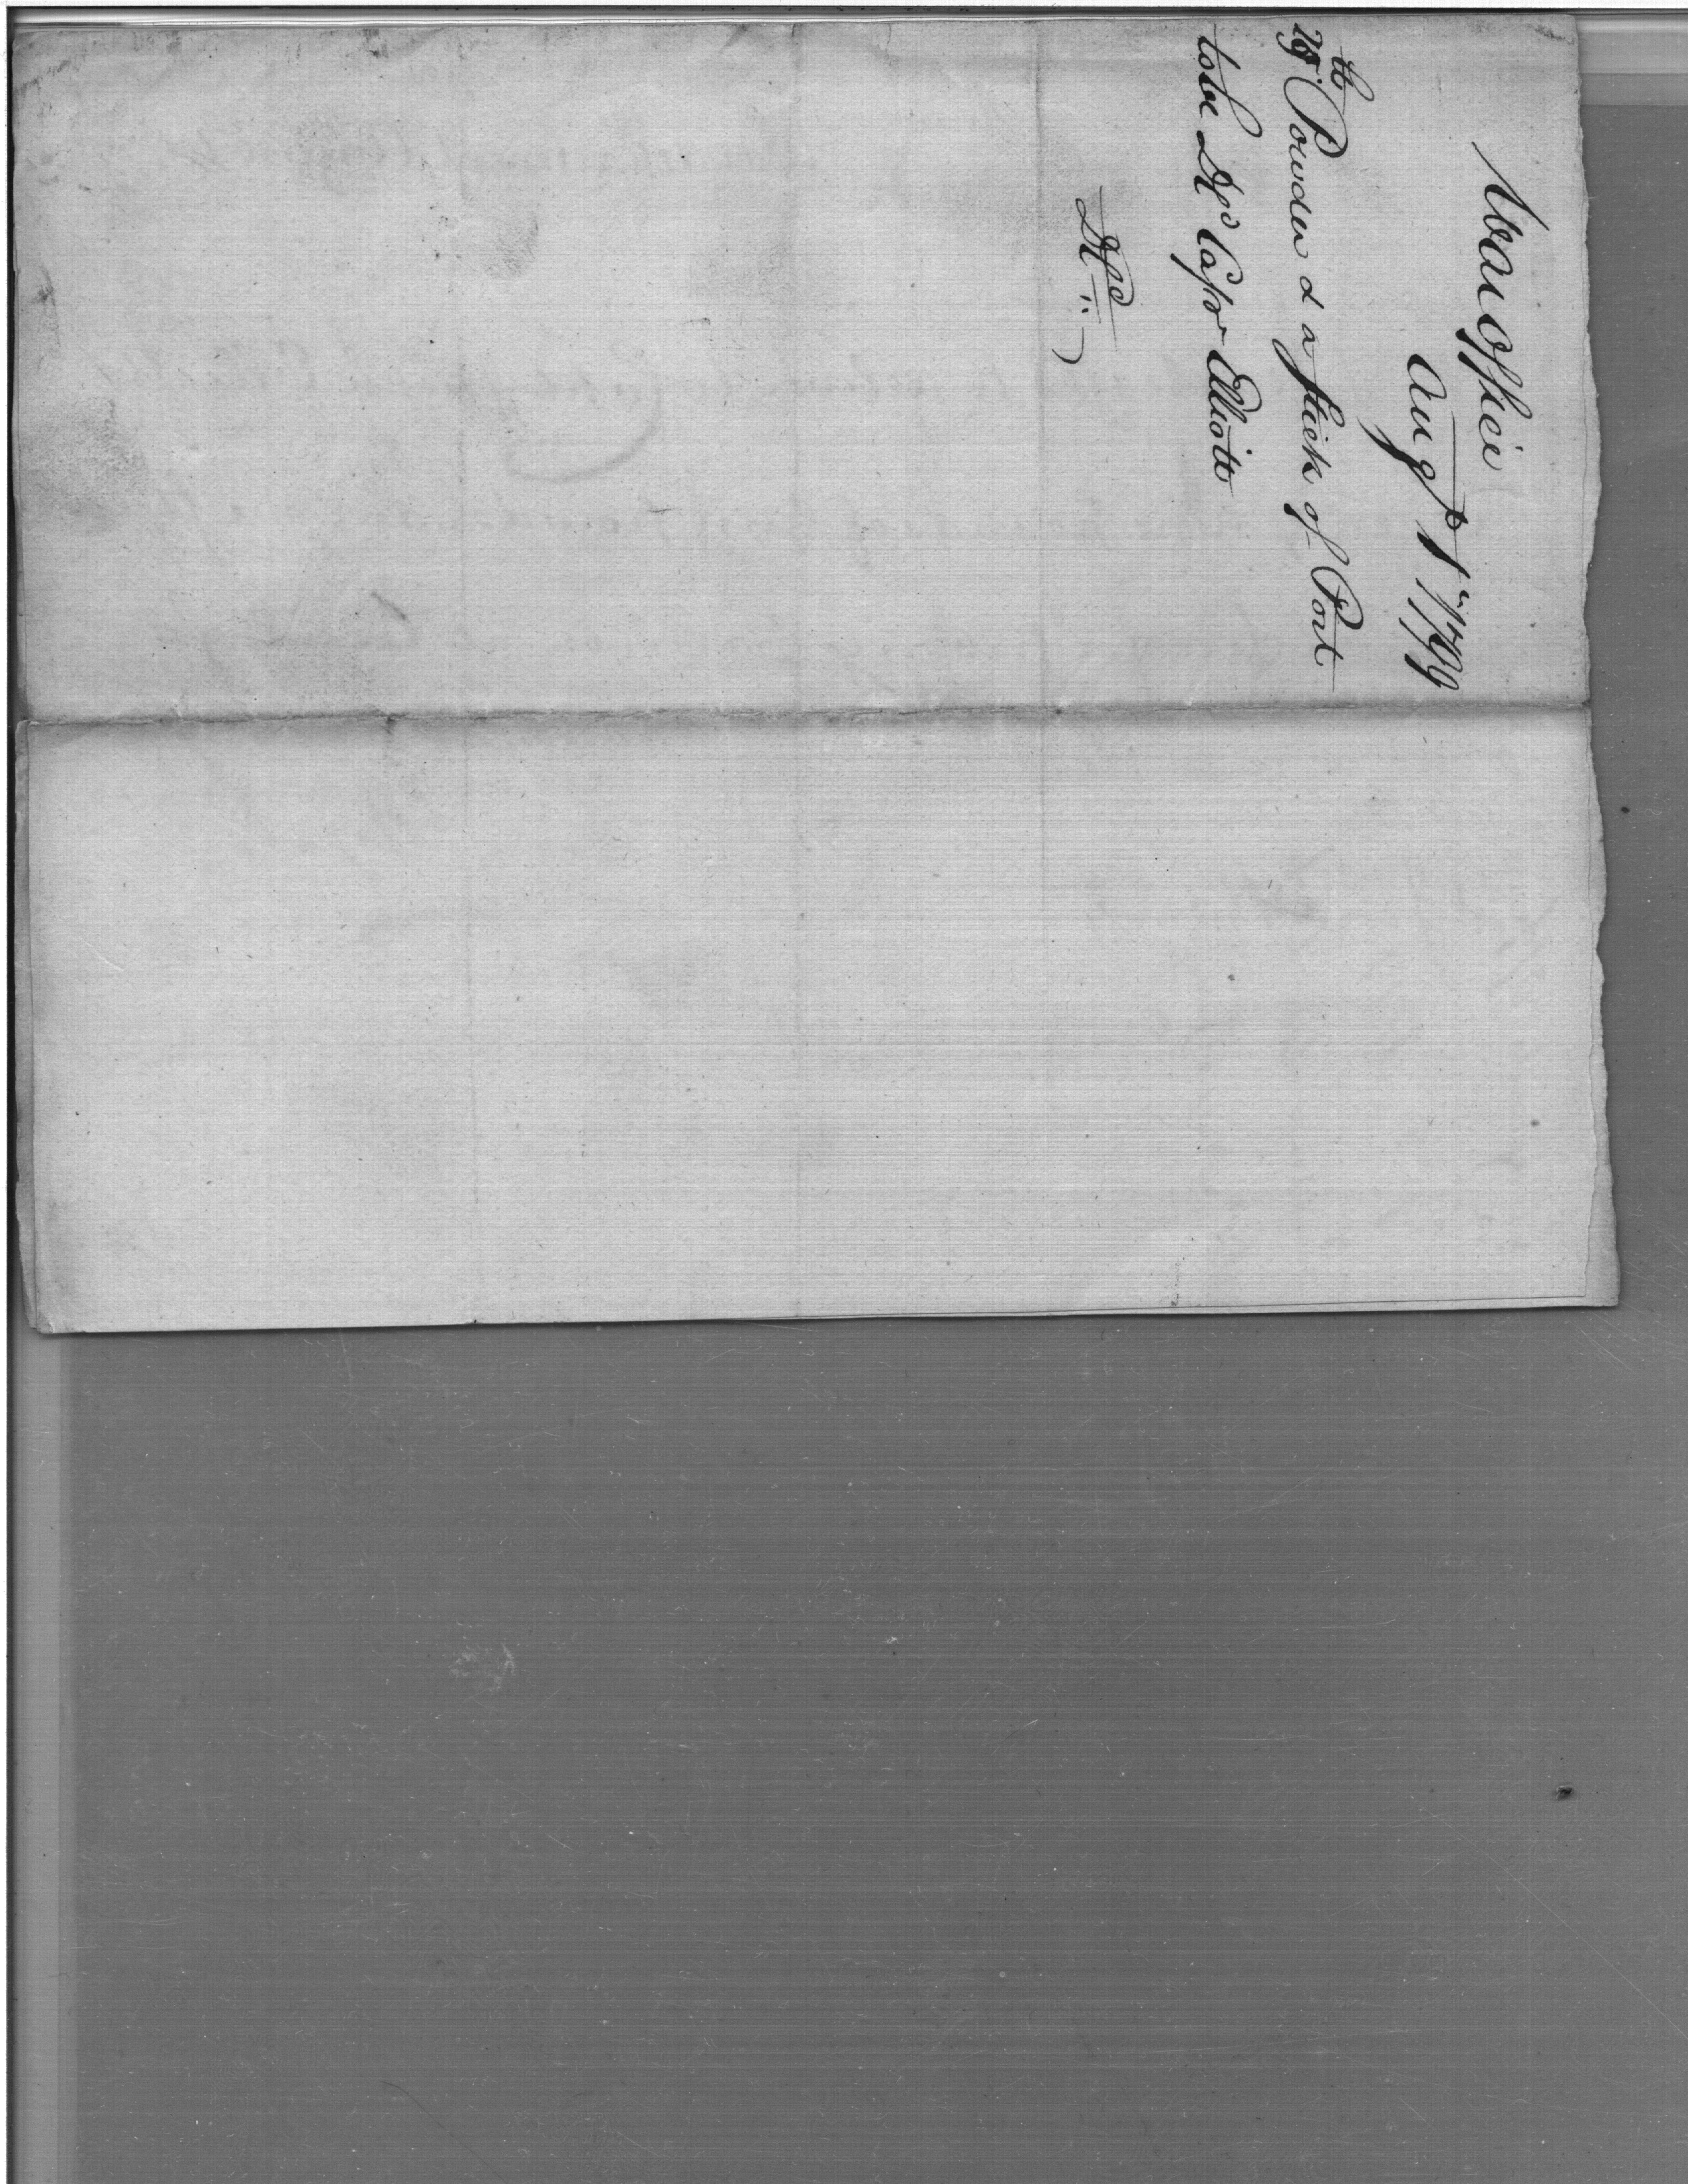 War office
Augt 1st 1799
lb
25 Powder & a stick of Port
tobe Dd Capt Elliott
Dd